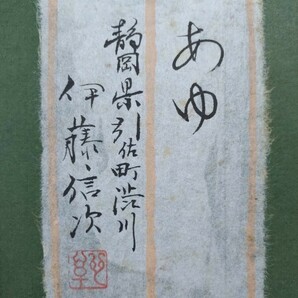 あゆ
静岡県引佐町渋川
伊藤信次